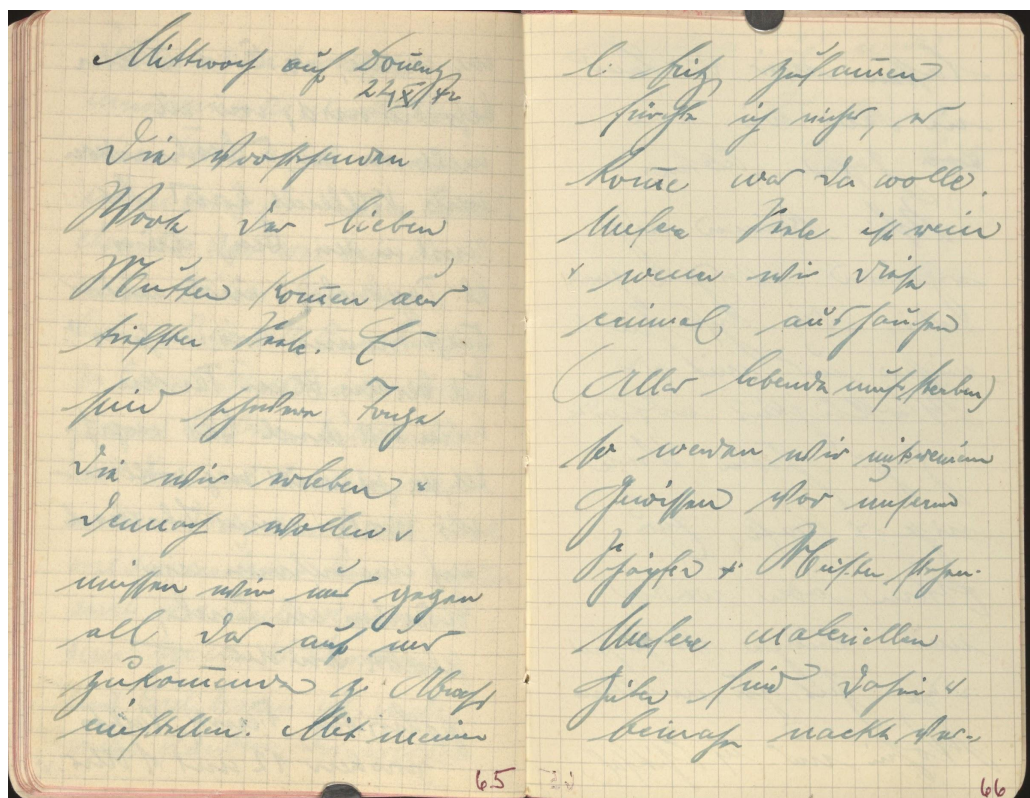 Mittwoch auf Doūerstg
22/X/42
Die Vorstehenden
Worte der lieben
Mutter kom̄en aus
tiefster Seele. Es
sind schwere Tage
die wir erleben u
dennoch wollen u
müssen wir uns gegen
all das auf uns
zukom̄ende z. Abwehr
einstellen. Mit meinen
l. Fritz zusam̄en
fürchte ich nichts, es
kom̄e was da wolle.
Unsere Seele ist rein
u wenn wir diese
einmal aushauchen
(Alles lebende muss sterben)
so werden wir mit reinem
Gewissen vor unserem
Schöpfer + Meister stehen.
Unsere materiellen
Güter sind dahin u
beinahe nackt ver-
65
66